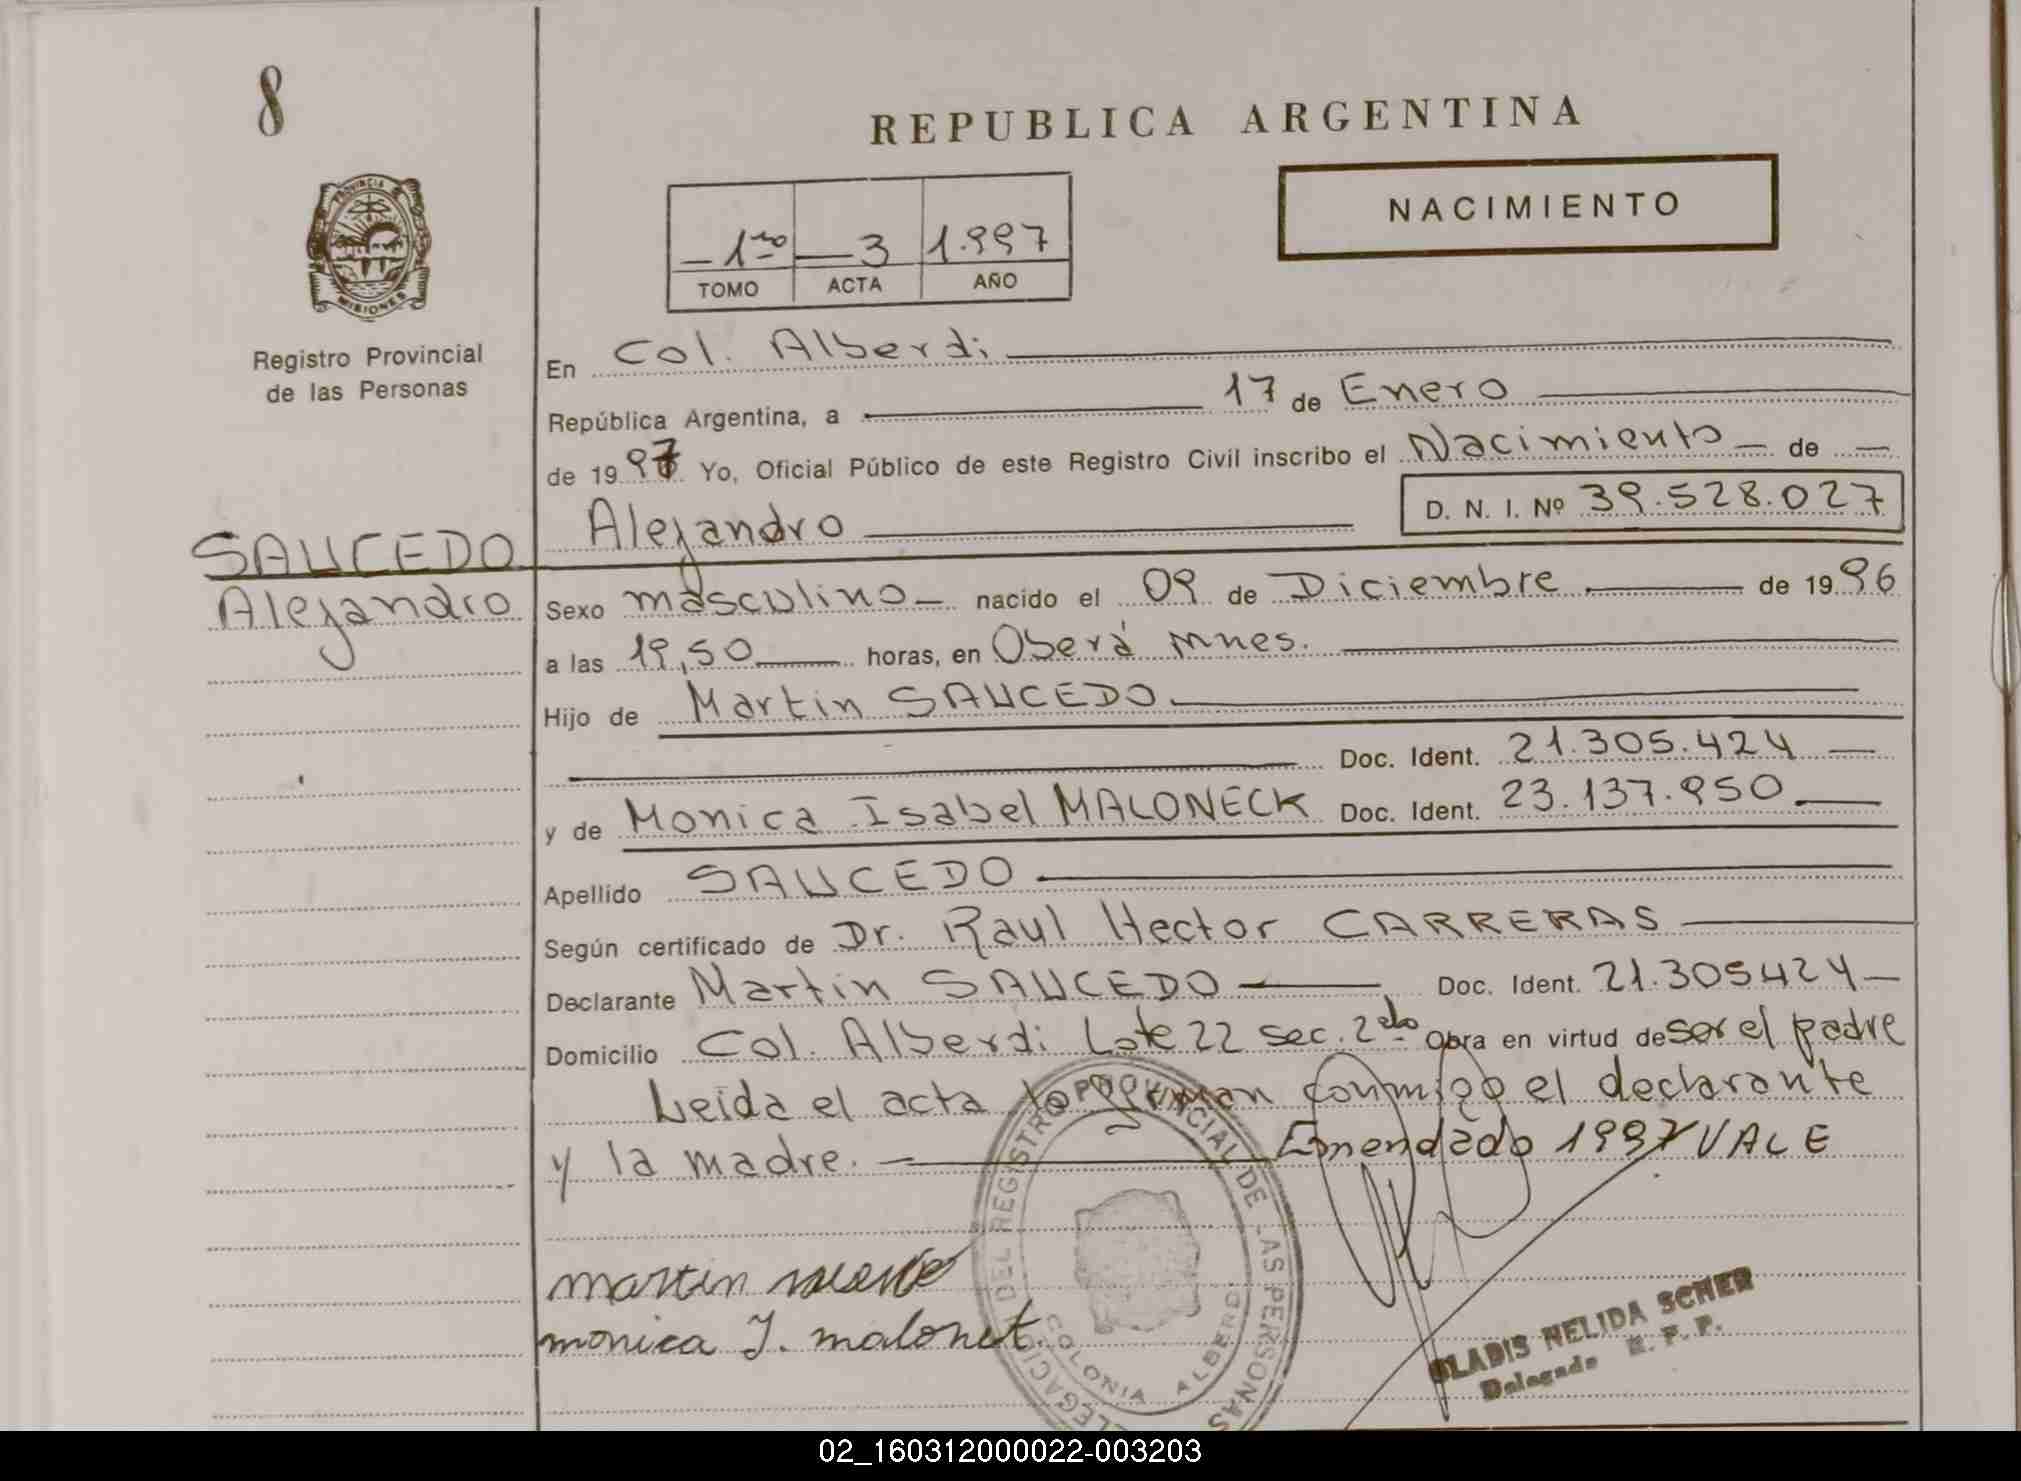 8
REPUBLICA ARGENTINA
PROVINCIA DE
MISIONES
Registro Provincial
de las Personas
1ro 3 1.997
TOMO ACTA AÑO
NACIMIENTO
En Col. Alberdi
República Argentina, a 17 de Enero
de 1997 Yo, Oficial Público de este Registro Civil inscribo el Nacimiento de
Alejandro D. N. I. Nº 39.528.027
SAUCEDO
Alejandro
Sexo masculino nacido el 09 de Diciembre de 1996
a las 19,50 horas, en Oberá mnes.
Hijo de Martin SAUCEDO
Doc. Ident. 21.305.424
y de Monica Isabel MALONECK Doc. Ident. 23.137.950
Apellido SAUCEDO
Según certificado de Dr. Raul Hector CARRERAS
Declarante Martin SAUCEDO Doc. Ident. 21.305424
Domicilio Col. Alberdi Lote 22 sec. 2do Obra en virtud de ser el padre
Leida el acta la firman conmigo el declarante
y la madre. Emendado 1997 VALE
martin
monica I. malonek
DELEGACION DEL REGISTRO PROVINCIAL DE LAS PERSONAS
COLONIA ALBERDI
GLADIS NELIDA SCHER
Delegada R. P. P.
02_160312000022-003203